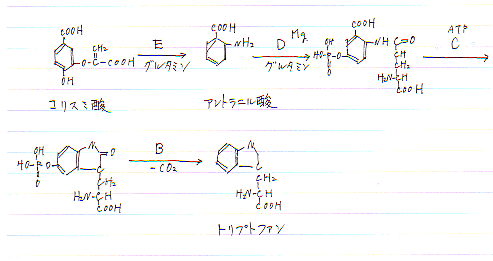 COOH
CH2
O-C-COOH
OH
コリスミ酸
E
グルタミン
COOH
NH2
アントラニル酸
D Mg
グルタミン
COOH
NH
C=O
CH2
H2N-CH
COOH
ATP
C
OH
HO-P-O
O
N
O
C
CH2
H2N-CH
COOH
B
-CO2
N
C
CH2
H2N-CH
COOH
トリプトファン